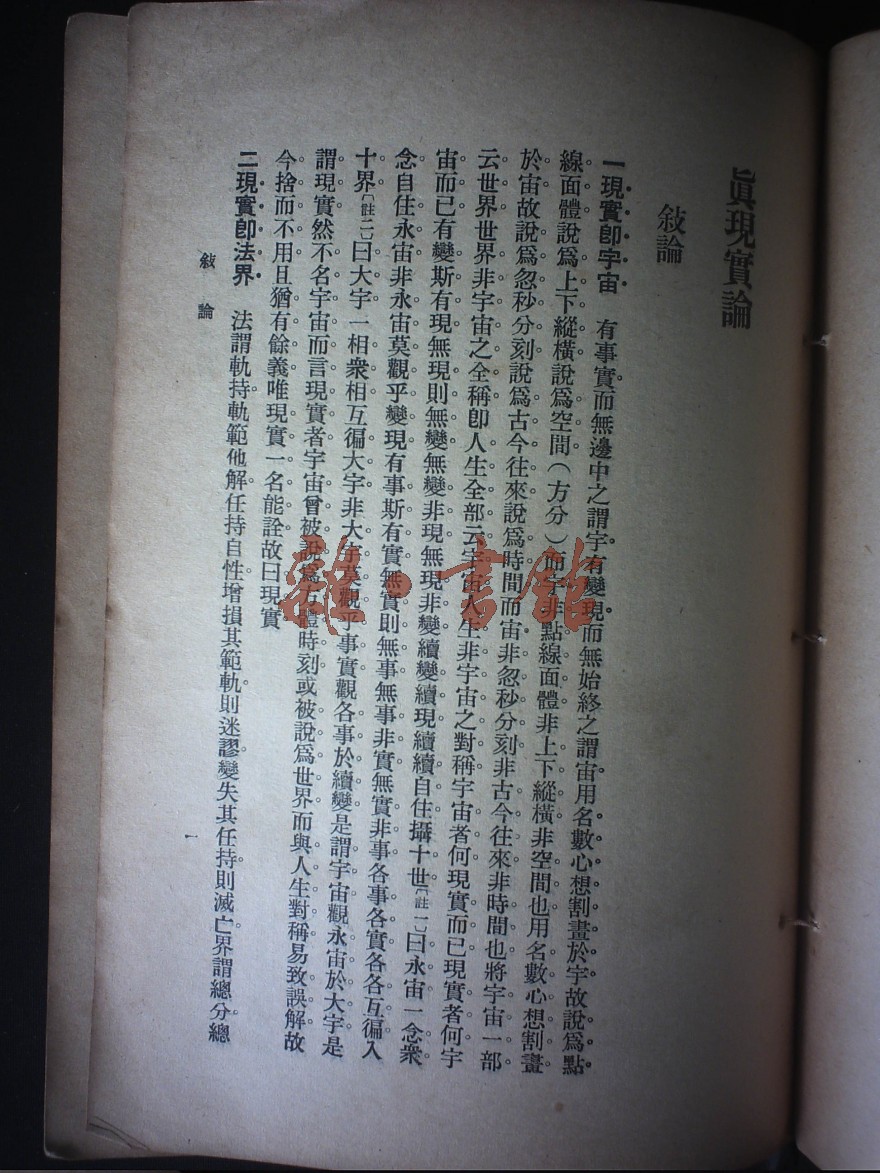 眞現實論
敍論
一現實卽宇宙　有事實而無邊中之謂宇有變現而無始終之謂宙用名數心想割畫於宇故說爲點
線面體說爲上下縱橫說爲空間（方分）而宇非點線面體非上下縱橫非空間也用名數心想割畫
於宙故說爲忽秒分刻說爲古今往來說爲時間而宙非忽秒分刻非古今往來非時間也將宇宙一部
云世界世界非宇宙之全稱卽人生全部云宇宙人生非宇宙之對稱宇宙者何現實而已現實者何宇
宙而已有變斯有現無現則無變無變非現無現非變續變續現續續自住攝十世〔註一〕曰永宙一念衆
念自住永宙非永宙莫觀乎變現有事斯有實無實則無事無事非實無實非事各事各實各各互徧入
十界〔註二〕曰大宇一相衆相互徧大宇非大宇莫觀乎事實觀各事於續變是謂宇宙觀永宙於大宇是
謂現實然不名宇宙而言現實者宇宙曾被說爲方體時刻或被說爲世界而與人生對稱易致誤解故
今捨而不用且猶有餘義唯現實一名能詮故曰現實
二現實卽法界　法謂軌持軌範他解任持自性增損其範軌則迷謬變失其任持則滅亡界謂總分總
敍論
一
雜·書館